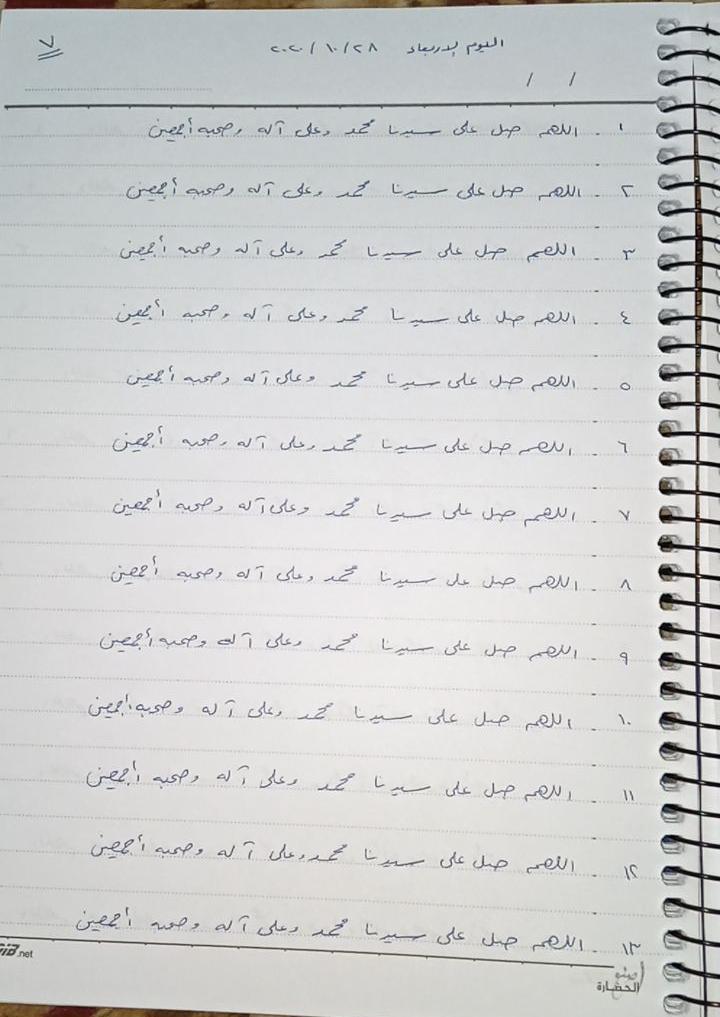 اليوم الاربعاء ٢٠٢٠/١٠/٢٨
٧
/ /
١. اللهم صل على سيدنا محمد وعلى آله وصحبه أجمعين
٢. اللهم صل على سيدنا محمد وعلى آله وصحبه أجمعين
٣. اللهم صل على سيدنا محمد وعلى آله وصحبه أجمعين
٤. اللهم صل على سيدنا محمد وعلى آله وصحبه أجمعين
٥. اللهم صل على سيدنا محمد وعلى آله وصحبه أجمعين
٦. اللهم صل على سيدنا محمد وعلى آله وصحبه أجمعين
٧. اللهم صل على سيدنا محمد وعلى آله وصحبه أجمعين
٨. اللهم صل على سيدنا محمد وعلى آله وصحبه أجمعين
٩. اللهم صل على سيدنا محمد وعلى آله وصحبه أجمعين
١٠. اللهم صل على سيدنا محمد وعلى آله وصحبه أجمعين
١١. اللهم صل على سيدنا محمد وعلى آله وصحبه أجمعين
١٢. اللهم صل على سيدنا محمد وعلى آله وصحبه أجمعين
١٣. اللهم صل على سيدنا محمد وعلى آله وصحبه أجمعين
الحضارة
.net